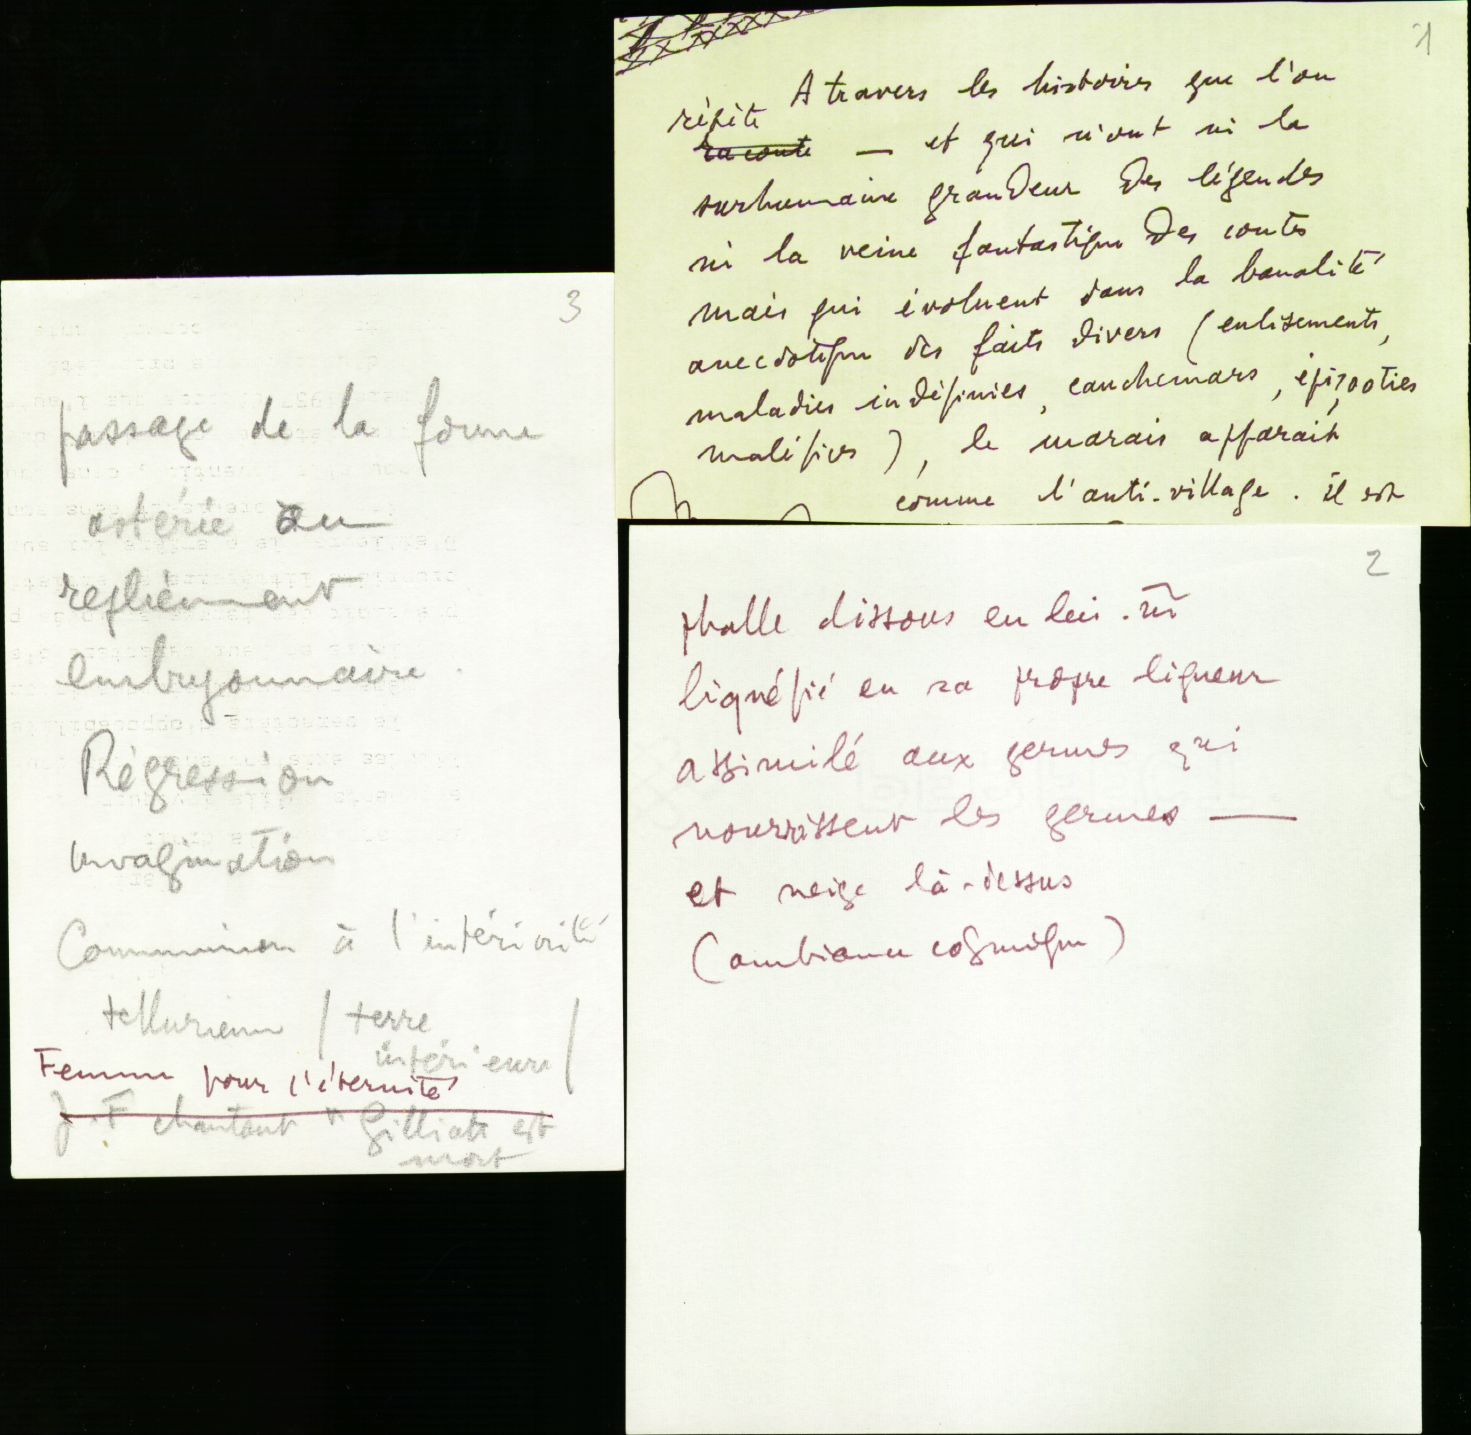 1
A travers les histoires que l'on
répète
raconte — et qui n'ont ni la
surhumaine grandeur des légendes
ni la veine fantastique des contes
mais qui évoluent dans la banalité
anecdotique des faits divers (enlisements,
maladies indéfinies, cauchemars, épizooties
maléfices), le marais apparaît
comme l'anti-village. il est
2
thalle dissous en lui.
liquéfié en sa propre liqueur
assimilé aux germes qui
nourrissent les germes —
et neige là-dessus
(ambiance cosmique)
3
passage de la forme
astérie au
repliement
embryonnaire.
Régression
invagination
Communion à l'intériorité
tellurienne / terre
intérieure /
Femme pour l'éternité
J.F chantant "Gilliatt est
mort